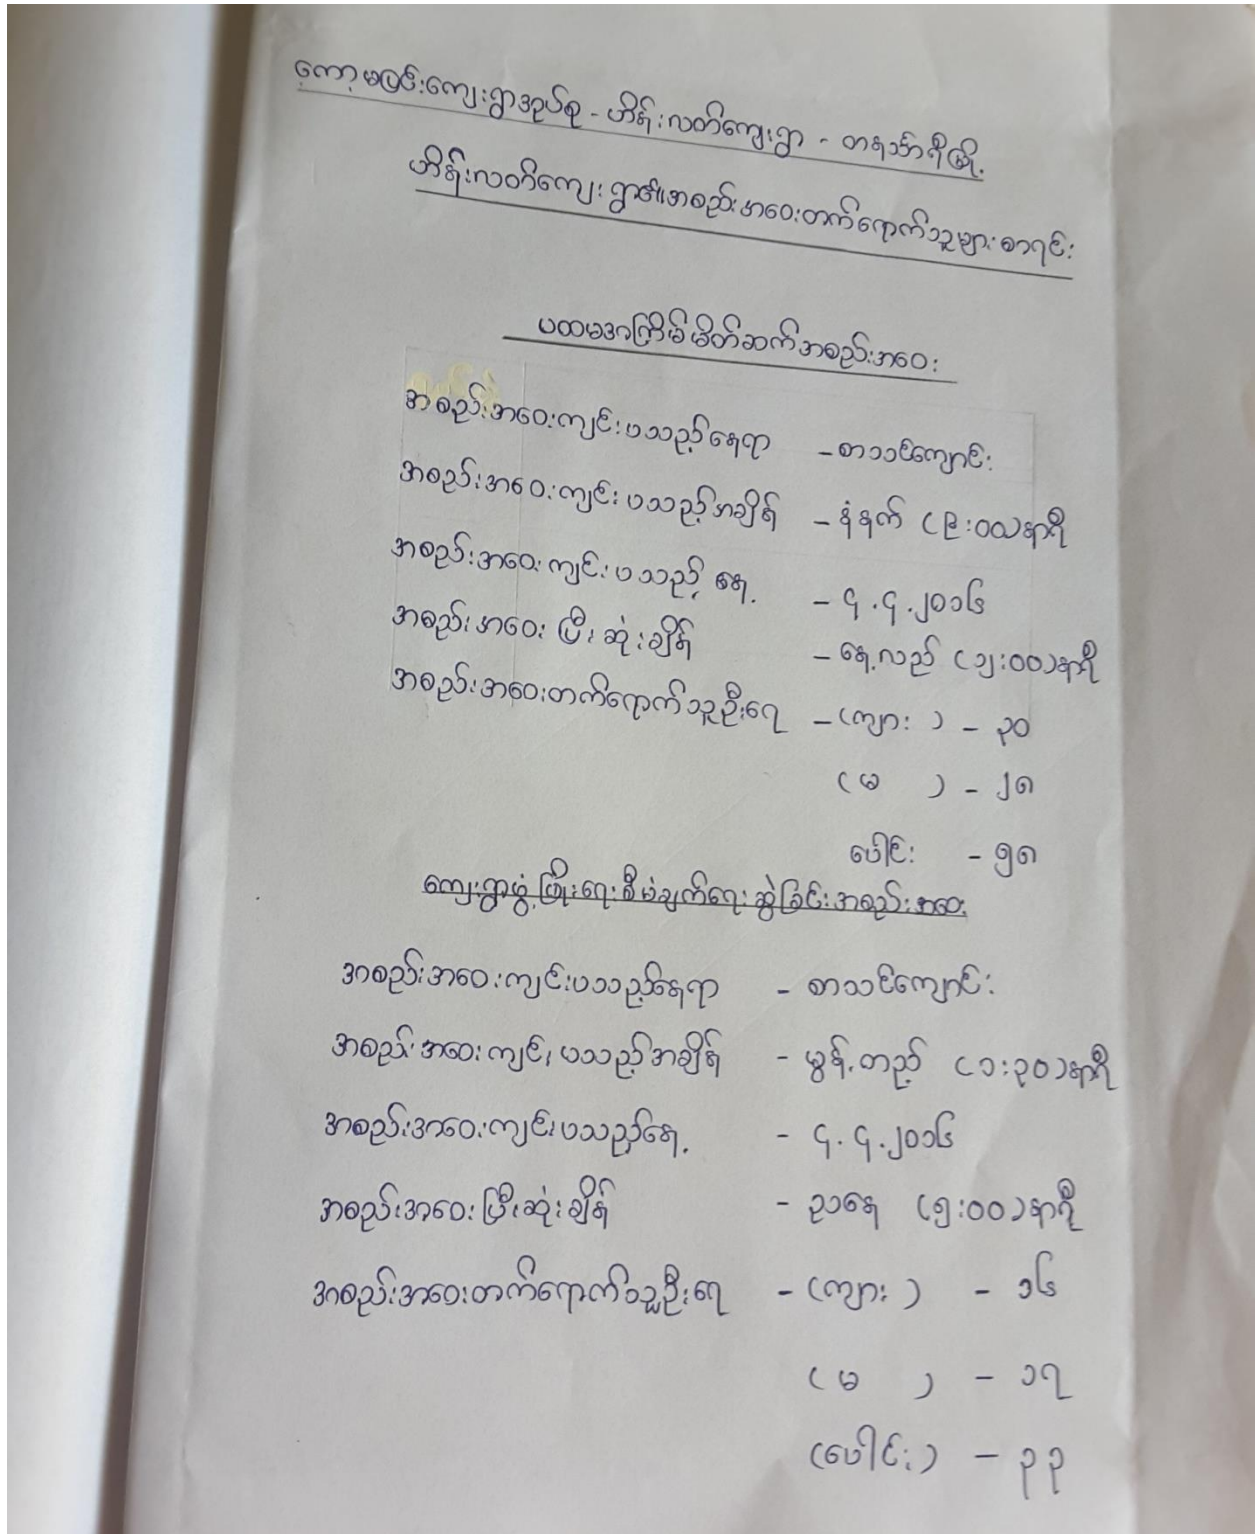 ကော့မပြင်းကျေးရွာအုပ်စု - ဟိန်းလတ်ကျေးရွာ - တနင်္သာရီမြို့
ဟိန်းလတ်ကျေးရွာ၏အစည်းအဝေးတက်ရောက်သူများစာရင်း
ပထမအကြိမ်မိတ်ဆက်အစည်းအဝေး
အစည်းအဝေးကျင်းပသည့်နေရာ - စာသင်ကျောင်း
အစည်းအဝေးကျင်းပသည့်အချိန် - နံနက် (၉:၀၀)နာရီ
အစည်းအဝေးကျင်းပသည့်နေ့ - ၄.၄.၂၀၁၆
အစည်းအဝေးပြီးဆုံးချိန် - နေ့လည် (၁၂:၀၀)နာရီ
အစည်းအဝေးတက်ရောက်သူဦးရေ - (ကျား) - ၃၀
(မ) - ၂၈
ပေါင်း - ၅၈
ကျေးရွာဖွံ့ဖြိုးရေးစီမံချက်ရေးဆွဲခြင်းအစည်းအဝေး
အစည်းအဝေးကျင်းပသည့်နေရာ - စာသင်ကျောင်း
အစည်းအဝေးကျင်းပသည့်အချိန် - မွန်းတည့် (၁:၃၀)နာရီ
အစည်းအဝေးကျင်းပသည့်နေ့ - ၄.၄.၂၀၁၆
အစည်းအဝေးပြီးဆုံးချိန် - ညနေ (၅:၀၀)နာရီ
အစည်းအဝေးတက်ရောက်သူဦးရေ - (ကျား) - ၁၆
(မ) - ၁၇
(ပေါင်း) - ၃၃